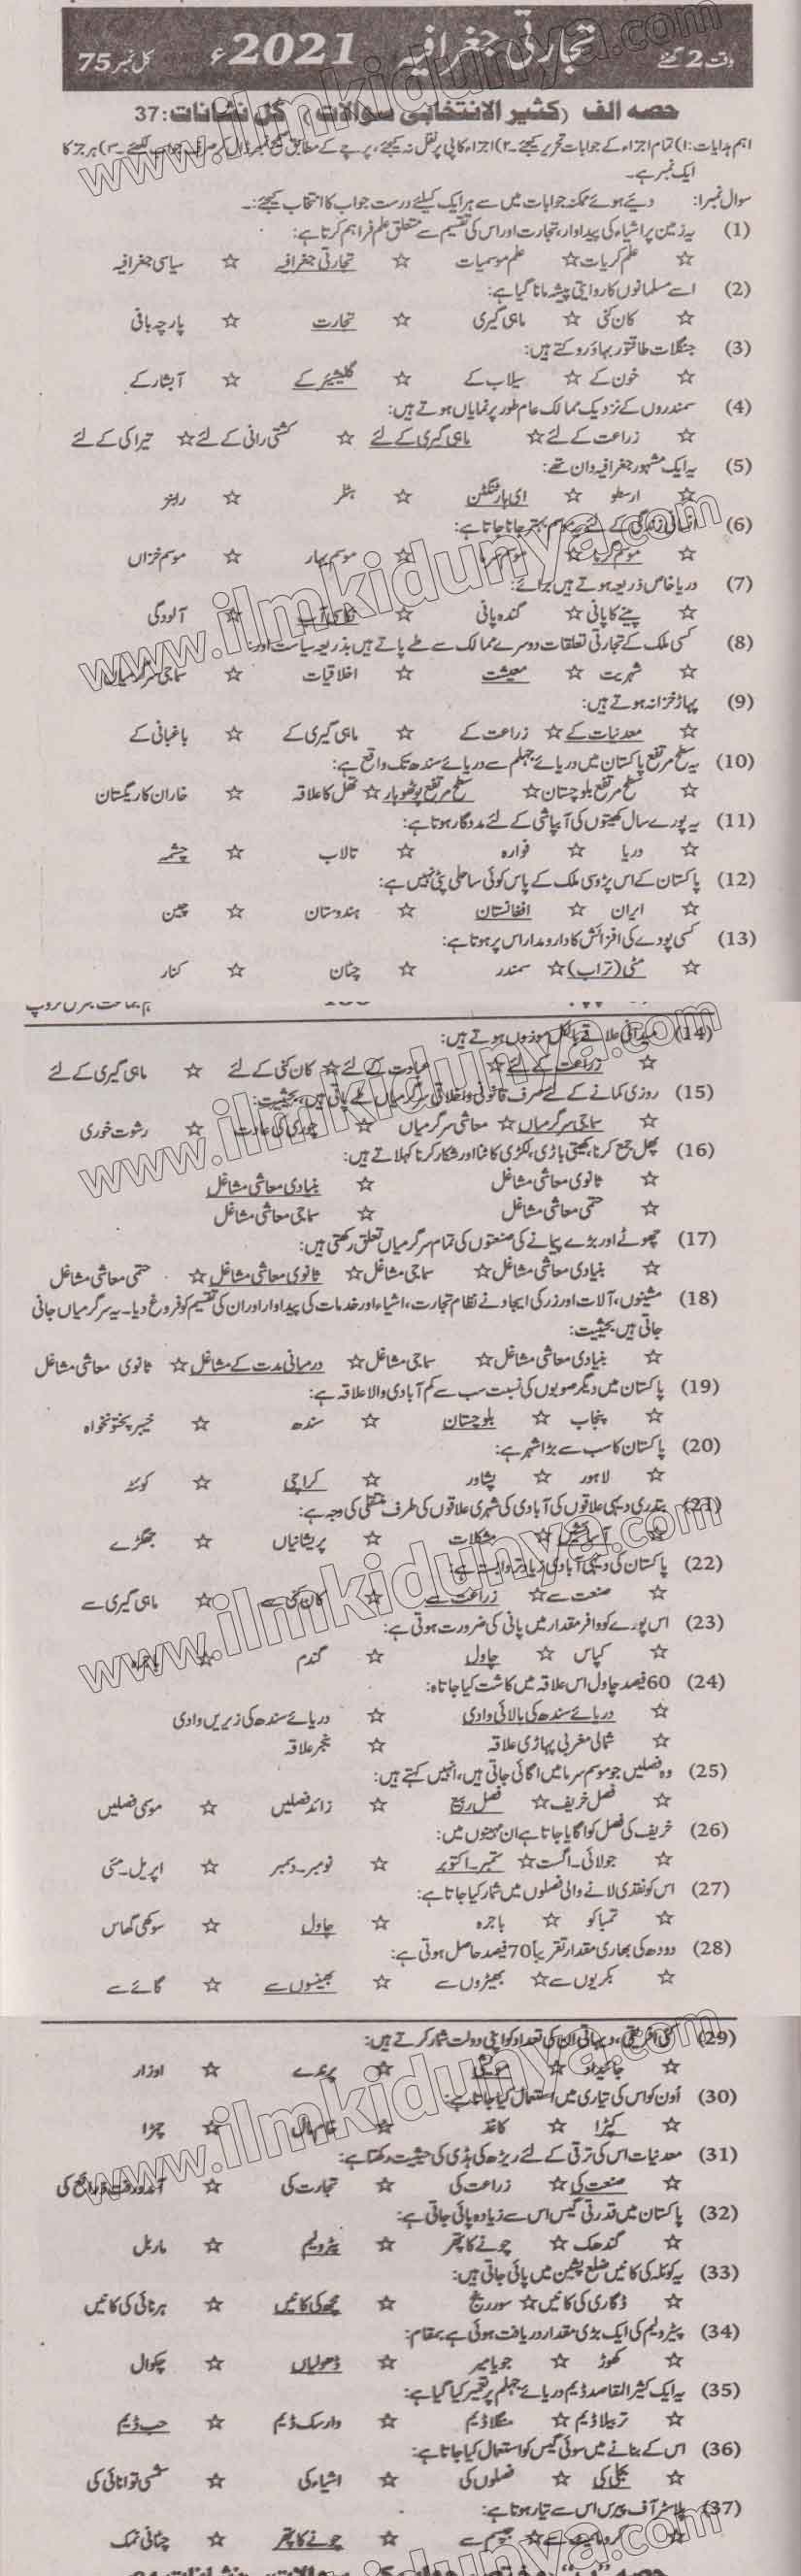 وقت 2 گھنٹے تجارتی جغرافیہ 2021ء کل نمبر 75
حصہ الف (کثیر الانتخابی سوالات) کل نشانات: 37
اہم ہدایات: ۱) تمام اجزاء کے جوابات تحریر کیجئے۔ ۲) اجزاء کاپی پر نقل نہ کیجئے، پرچے کے مطابق صحیح نمبر ڈال کر صرف جواب لکھئے۔ ۳) ہر جز کا
ایک نمبر ہے۔
سوال نمبر1: دیئے ہوئے ممکنہ جوابات میں سے ہر ایک کیلئے درست جواب کا انتخاب کیجئے:۔
(1) یہ زمین پر اشیاء کی پیداوار، تجارت اور اس کی تقسیم سے متعلق علم فراہم کرتا ہے:
☆ علم کریات ☆ علم موسمیات ☆ تجارتی جغرافیہ ☆ سیاسی جغرافیہ
(2) اسے مسلمانوں کا روایتی پیشہ مانا گیا ہے:
☆ کان کنی ☆ ماہی گیری ☆ تجارت ☆ پارچہ بافی
(3) جنگلات طاقتور بہاؤ روکتے ہیں:
☆ خون کے ☆ سیلاب کے ☆ گلیشیئر کے ☆ آبشار کے
(4) سمندروں کے نزدیک ممالک عام طور پر نمایاں ہوتے ہیں:
☆ زراعت کے لئے ☆ ماہی گیری کے لئے ☆ کشتی رانی کے لئے ☆ تیراکی کے لئے
(5) یہ ایک مشہور جغرافیہ دان تھے:
☆ ارسطو ☆ ای ہارٹنگٹن ☆ ہٹلر ☆ رابنز
(6) انسانی زندگی کے لئے یہ موسم بہتر جانا جاتا ہے:
☆ موسم گرما ☆ موسم سرما ☆ موسم بہار ☆ موسم خزاں
(7) دریا خاص ذریعہ ہوتے ہیں برائے:
☆ پینے کا پانی ☆ گندہ پانی ☆ نکاسی آب ☆ آلودگی
(8) کسی ملک کے تجارتی تعلقات دوسرے ممالک سے طے پاتے ہیں بذریعہ سیاست اور:
☆ شہریت ☆ معیشت ☆ اخلاقیات ☆ سماجی سرگرمیاں
(9) پہاڑ خزانہ ہوتے ہیں:
☆ معدنیات کے ☆ زراعت کے ☆ ماہی گیری کے ☆ باغبانی کے
(10) یہ سطح مرتفع پاکستان میں دریائے جہلم سے دریائے سندھ تک واقع ہے:
☆ سطح مرتفع بلوچستان ☆ سطح مرتفع پوٹھوہار ☆ تھل کا علاقہ ☆ خاران کا ریگستان
(11) یہ پورے سال کھیتوں کی آبپاشی کے لئے مددگار ہوتا ہے:
☆ دریا ☆ فوارہ ☆ تالاب ☆ چشمہ
(12) پاکستان کے اس پڑوسی ملک کے پاس کوئی ساحلی پٹی نہیں ہے:
☆ ایران ☆ افغانستان ☆ ہندوستان ☆ چین
(13) کسی پودے کی افزائش کا دارومدار اس پر ہوتا ہے:
☆ مٹی (تراب) ☆ سمندر ☆ چٹان ☆ کنار
(14) میدانی علاقے بالکل موزوں ہوتے ہیں:
☆ زراعت کے لئے ☆ عبادت کے لئے ☆ کان کنی کے لئے ☆ ماہی گیری کے لئے
(15) روزی کمانے کے لئے صرف قانونی و اخلاقی سرگرمیاں طے پاتی ہیں، بحیثیت:
☆ سماجی سرگرمیاں ☆ معاشی سرگرمیاں ☆ چوری کی عادت ☆ رشوت خوری
(16) پھل جمع کرنا، کھیتی باڑی، لکڑی کاٹنا اور شکار کرنا کہلاتے ہیں:
☆ ثانوی معاشی مشاغل ☆ بنیادی معاشی مشاغل
☆ حتمی معاشی مشاغل ☆ سماجی معاشی مشاغل
(17) چھوٹے اور بڑے پیمانے کی صنعتوں کی تمام سرگرمیاں تعلق رکھتی ہیں:
☆ بنیادی معاشی مشاغل ☆ سماجی مشاغل ☆ ثانوی معاشی مشاغل ☆ حتمی معاشی مشاغل
(18) مشینوں، آلات اور زر کی ایجاد نے نظام تجارت، اشیاء اور خدمات کی پیداوار اور ان کی تقسیم کو فروغ دیا۔ یہ سرگرمیاں جانی
جاتی ہیں بحیثیت:
☆ بنیادی معاشی مشاغل ☆ سماجی مشاغل ☆ درمیانی مدت کے مشاغل ☆ ثانوی معاشی مشاغل
(19) پاکستان میں دیگر صوبوں کی نسبت سب سے کم آبادی والا علاقہ ہے:
☆ پنجاب ☆ بلوچستان ☆ سندھ ☆ خیبر پختونخواہ
(20) پاکستان کا سب سے بڑا شہر ہے:
☆ لاہور ☆ پشاور ☆ کراچی ☆ کوئٹہ
(21) بتدریج دیہی علاقوں کی آبادی کی شہری علاقوں کی طرف منتقلی کی وجہ ہے:
☆ آسائشیں ☆ مشکلات ☆ پریشانیاں ☆ جھگڑے
(22) پاکستان کی دیہی آبادی زیادہ تر وابستہ ہے:
☆ صنعت سے ☆ زراعت سے ☆ کان کنی سے ☆ ماہی گیری سے
(23) اس پورے کو وافر مقدار میں پانی کی ضرورت ہوتی ہے:
☆ کپاس ☆ چاول ☆ گندم ☆ باجرہ
(24) 60 فیصد چاول اس علاقہ میں کاشت کیا جاتا ہ:
☆ دریائے سندھ کی بالائی وادی ☆ دریائے سندھ کی زیریں وادی
☆ شمالی مغربی پہاڑی علاقہ ☆ بنجر علاقہ
(25) وہ فصلیں جو موسم سرما میں اگائی جاتی ہیں، انہیں کہتے ہیں:
☆ فصل خریف ☆ فصل ربیع ☆ زائد فصلیں ☆ موسمی فصلیں
(26) خریف کی فصل کو اگایا جاتا ہے ان مہینوں میں:
☆ جولائی۔اگست ☆ ستمبر۔اکتوبر ☆ نومبر۔دسمبر ☆ اپریل۔مئی
(27) اس کو نقدی لانے والی فصلوں میں شمار کیا جاتا ہے:
☆ تمباکو ☆ باجرہ ☆ چاول ☆ سوکھی گھاس
(28) دودھ کی بھاری مقدار تقریباً 70 فیصد حاصل ہوتی ہے:
☆ بکریوں سے ☆ بھیڑوں سے ☆ بھینسوں سے ☆ گائے سے
(29) کئی افریقی، دیہاتی ان کی تعداد کو اپنی دولت شمار کرتے ہیں:
☆ جائیداد ☆ مویشی ☆ پرندے ☆ اوزار
(30) اُون کو اس کی تیاری میں استعمال کیا جاتا ہے:
☆ کپڑا ☆ کاغذ ☆ خام مال ☆ چمڑا
(31) معدنیات اس کی ترقی کے لئے ریڑھ کی ہڈی کی حیثیت رکھتا ہے:
☆ صنعت کی ☆ زراعت کی ☆ تجارت کی ☆ آمدورفت ذرائع کی
(32) پاکستان میں قدرتی گیس اس سے زیادہ پائی جاتی ہے:
☆ گندھک ☆ چونے کا پتھر ☆ پیٹرولیم ☆ ماربل
(33) یہ کوئلہ کی کانیں ضلع پشین میں پائی جاتی ہیں:
☆ ڈگاری کی کانیں ☆ سور رینج ☆ مچھ کی کانیں ☆ ہرنائی کی کانیں
(34) پیٹرولیم کی ایک بڑی مقدار دریافت ہوئی ہے بمقام:
☆ کھوڑ ☆ جویامیر ☆ ڈھولیاں ☆ چکوال
(35) یہ ایک کثیر المقاصد ڈیم دریائے جہلم پر تعمیر کیا گیا ہے:
☆ تربیلا ڈیم ☆ منگلا ڈیم ☆ وارسک ڈیم ☆ حب ڈیم
(36) اس کے بنانے میں سوئی گیس کو استعمال کیا جاتا ہے:
☆ بجلی کی ☆ فصلوں کی ☆ اشیاء کی ☆ شمسی توانائی کی
(37) پلاسٹر آف پیرس اس سے تیار ہوتا ہے:
☆ کرومائیٹ سے ☆ جپسم سے ☆ چونے کا پتھر ☆ چٹانی نمک
www.ilmkidunya.com
www.ilmkidunya.com
www.ilmkidunya.com
www.ilmkidunya.com
www.ilmkidunya.com